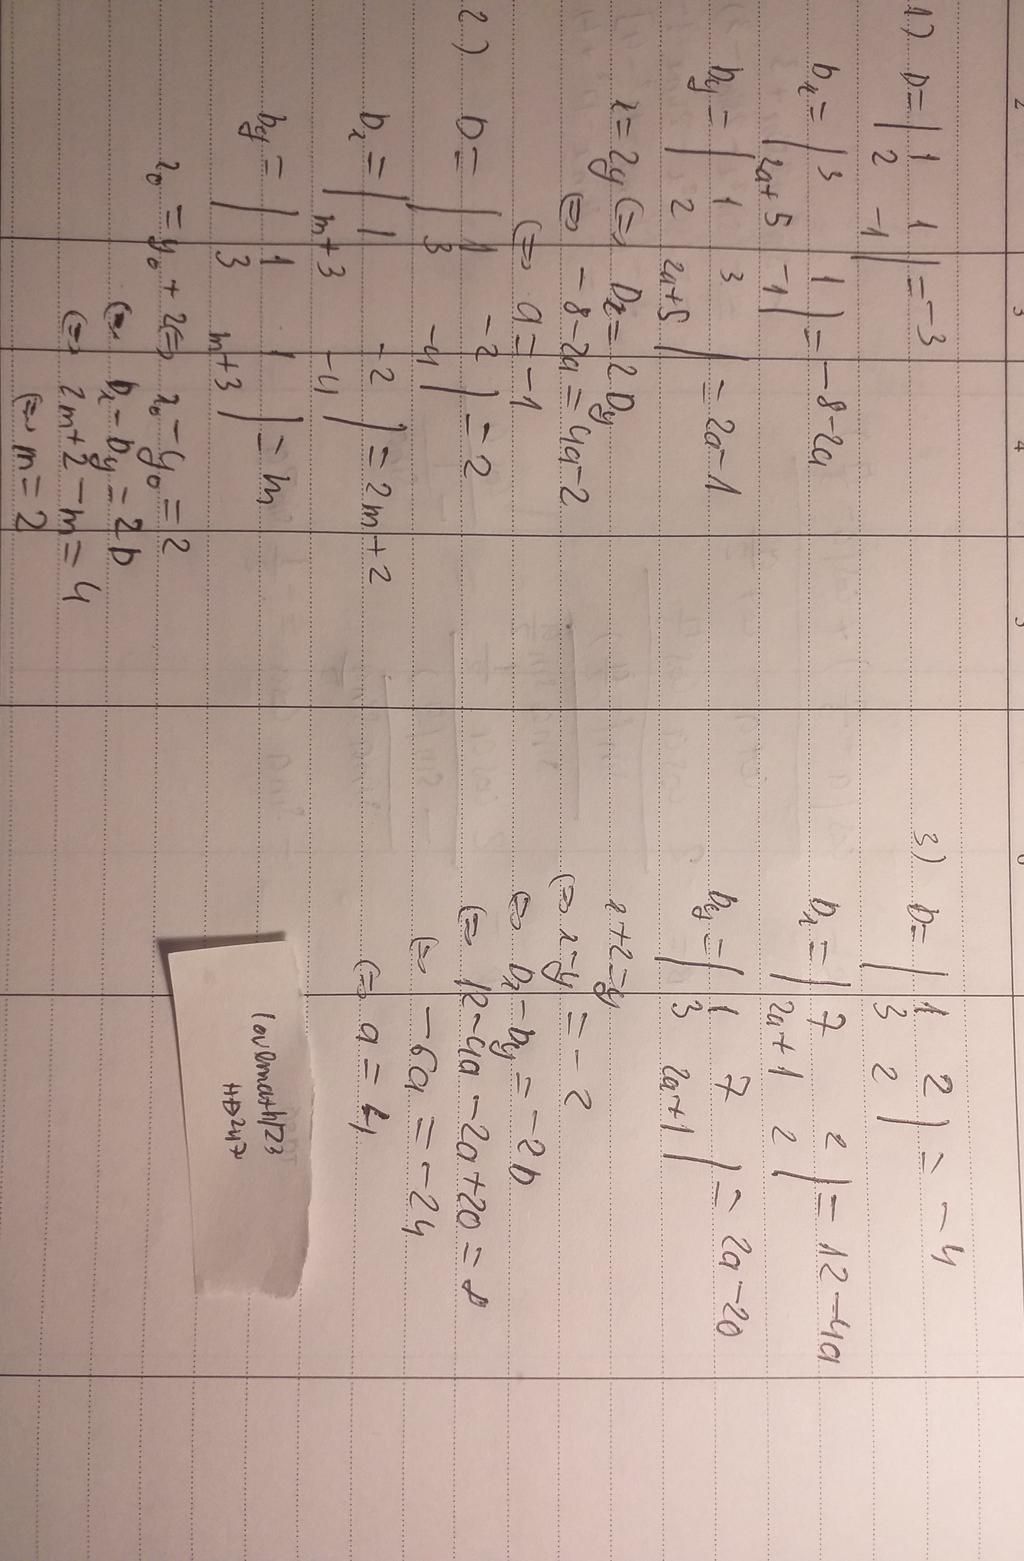 1) D = | 1 1 |
| 2 -1 | = -3
Dx = | 3 1 |
| 2a+5 -1 | = -8-2a
Dy = | 1 3 |
| 2 2a+5 | = 2a-1
x = 2y (=) Dx = 2Dy
(=) -8-2a = 4a-2
(=) a = -1
2.) D = | 1 -2 |
| 3 -4 | = 2
Dx = | 1 -2 |
| m+3 -4 | = 2m+2
Dy = | 1 1 |
| 3 m+3 | = m
x₀ = y₀ + 2 (=) x₀ - y₀ = 2
(=) Dx - Dy = 2D
(=) 2m+2 - m = 4
(=) m = 2
3) D = | 1 2 |
| 3 2 | = -4
Dx = | 7 2 |
| 2a+1 2 | = 12-4a
Dy = | 1 7 |
| 3 2a+1 | = 2a-20
x+2=y
(=) x-y = -2
(=) Dx - Dy = -2D
(=) 12-4a - 2a+20 = 8
(=) -6a = -24
(=) a = 4